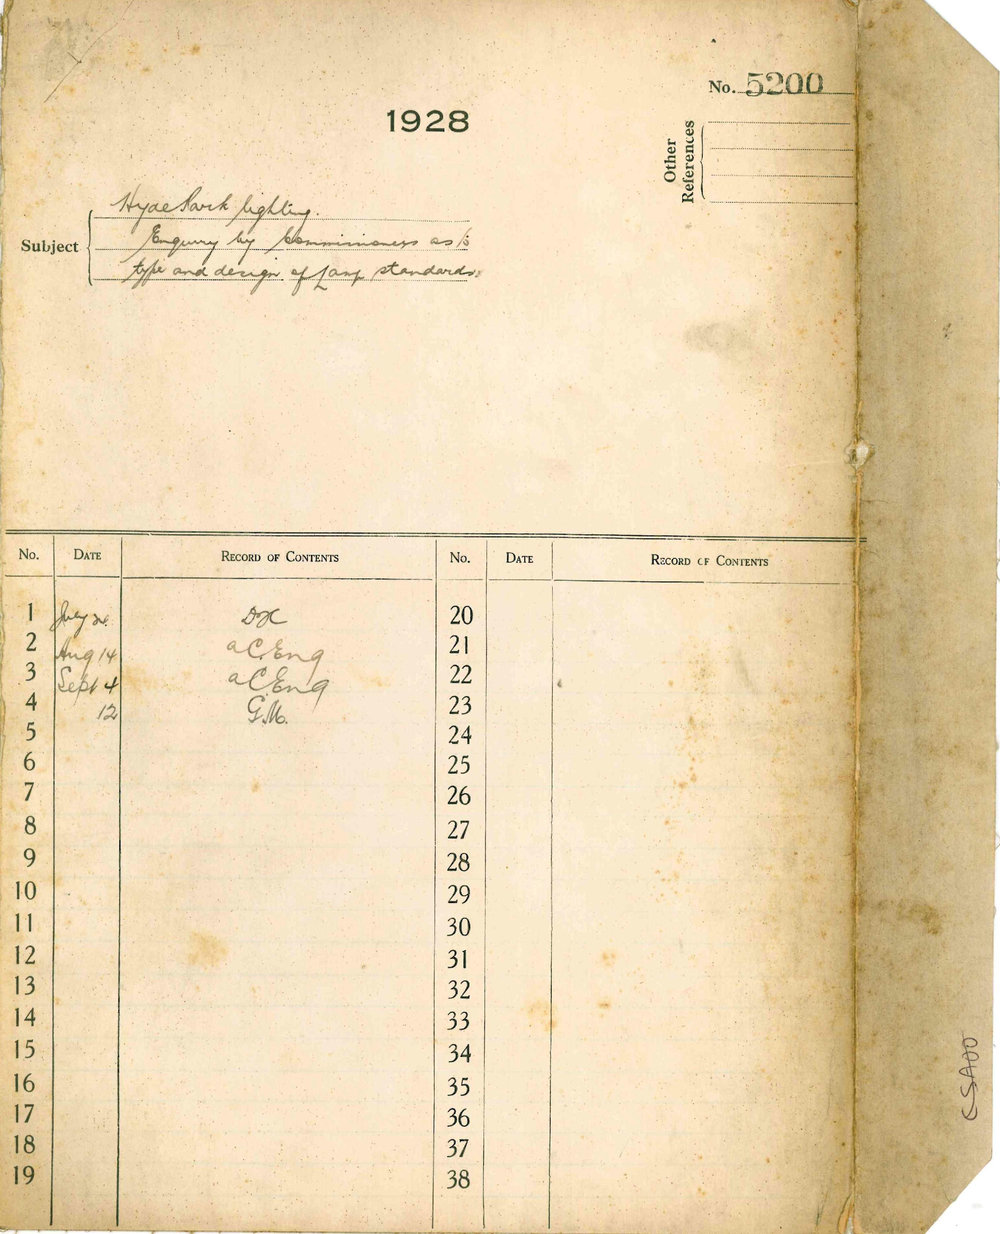 No. 5200
1928
Other
References
Subject
Hyde Park lighting.
Enquiry by Commissioners as to
type and design of Lamp standards.
No. DATE RECORD OF CONTENTS No. DATE RECORD OF CONTENTS
1 July 20
2 Aug 14 a C. Eng 21
3 Sept 4 a C. Eng 22
4 12 G.M. 23
5 24
6 25
7 26
8 27
9 28
10 29
11 30
12 31
13 32
14 33
15 34
16 35
17 36
18 37
19 38
CSA00